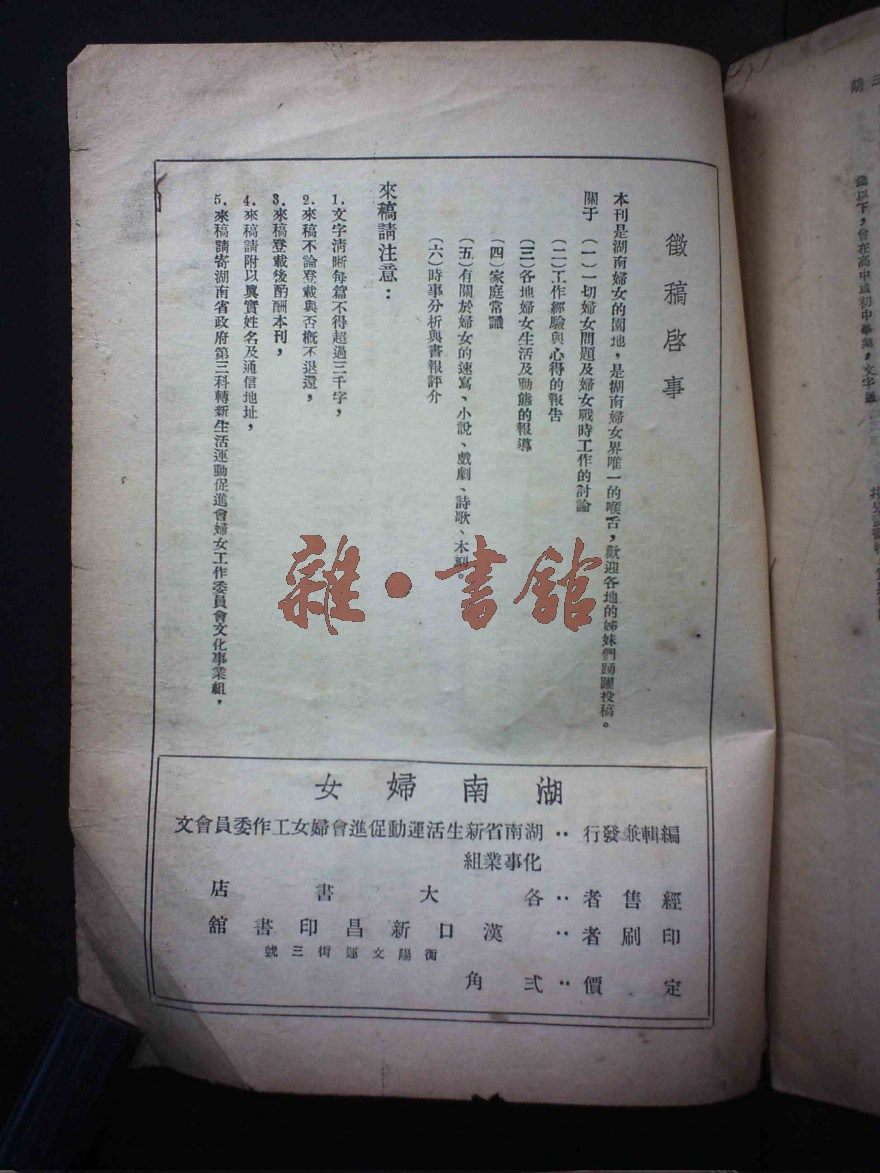 徵稿啓事
本刊是湖南婦女的園地，是湖南婦女界唯一的喉舌，歡迎各地的姊妹們踴躍投稿。
關于（一）一切婦女問題及婦女戰時工作的討論
（二）工作經驗與心得的報告
（三）各地婦女生活及動態的報導
（四）家庭常識
（五）有關於婦女的速寫、小說、戲劇、詩歌、木刻。
（六）時事分析與書報評介
來稿請注意：
1．文字清晰每篇不得超過三千字，
2．來稿不論登載與否概不退還，
3．來稿登載後酌酬本刊，
4．來稿請附以眞實姓名及通信地址，
5．來稿請寄湖南省政府第三科轉新生活運動促進會婦女工作委員會文化事業組，
湖南婦女
編輯兼發行：湖南省新生活運動促進會婦女工作委員會文
化事業組
經售者：各大書店
印刷者：漢口新昌印書館
衡陽文運街三號
定價：弍角
雜·書館
三期